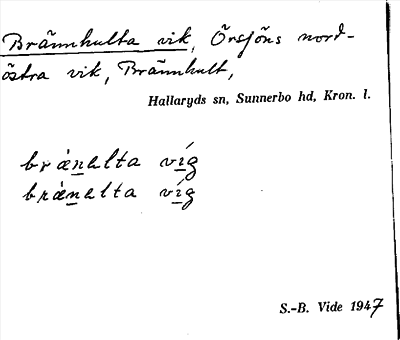 Brännhulta vik, Örsjöns nord-
östra vik, Brännhult,
Hallaryds sn, Sunnerbo hd, Kron. l.
bræ̀nulta víg
bræ̀nulta víg
S.-B. Vide 1947